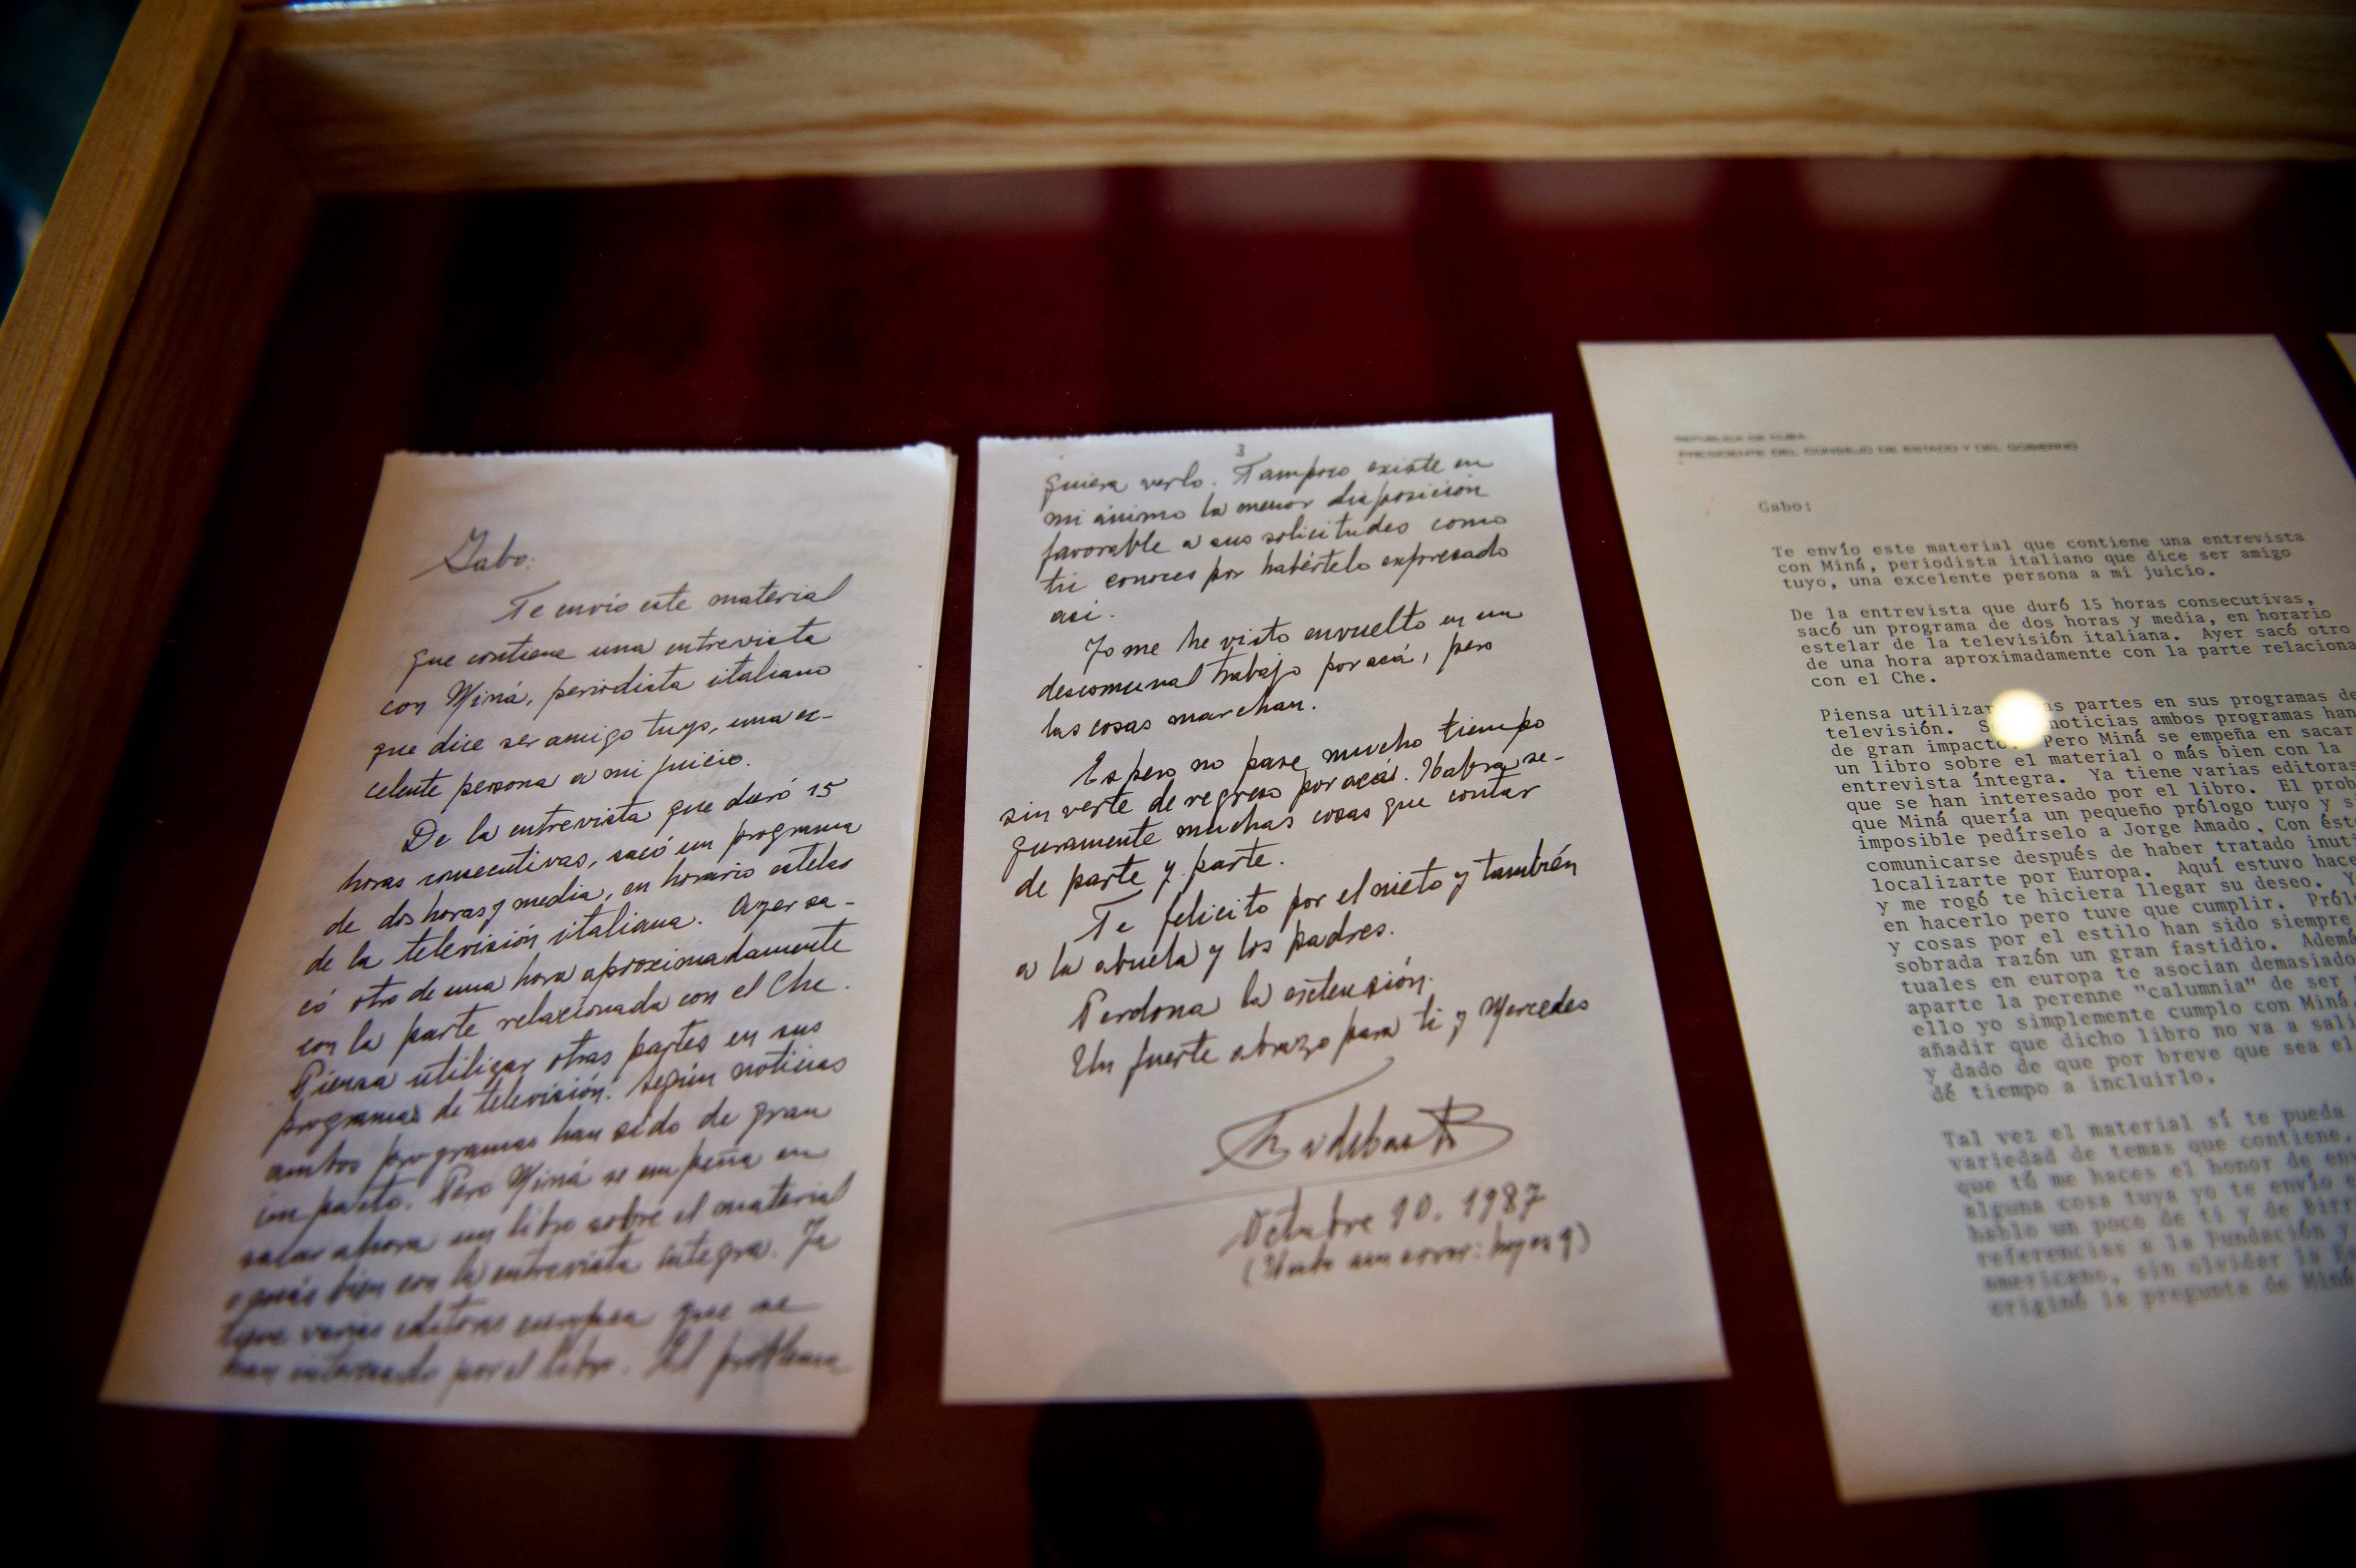 Gabo:
Te envío este material
que contiene una entrevista
con Miná, periodista italiano
que dice ser amigo tuyo, una ex-
celente persona a mi juicio.
De la entrevista que duró 15
horas consecutivas, sacó un programa
de dos horas y media, en horario estelar
de la televisión italiana. Ayer sa-
có otro de una hora aproximadamente
con la parte relacionada con el Che.
Piensa utilizar otras partes en sus
programas de televisión. Según noticias
ambos programas han sido de gran
impacto. Pero Miná se empeña en
sacar ahora un libro sobre el material
o más bien con la entrevista íntegra. Ya
tiene varias editoras europeas que se
han interesado por el libro. El problema
3
quiera verlo. Tampoco existe en
mi ánimo la menor disposición
favorable a sus solicitudes como
tú conoces por habértelo expresado
así.
Yo me he visto envuelto en un
descomunal trabajo por acá, pero
las cosas marchan.
Espero no pase mucho tiempo
sin verte de regreso por acá. Habrá se-
guramente muchas cosas que contar
de parte y parte.
Te felicito por el nieto y también
a la abuela y los padres.
Perdona la extensión.
Un fuerte abrazo para ti y Mercedes
Octubre 10. 1987
(Hubo un error: hoy es 9)
REPUBLICA DE CUBA
PRESIDENTE DEL CONSEJO DE ESTADO Y DEL GOBIERNO
Gabo:
Te envío este material que contiene una entrevista
con Miná, periodista italiano que dice ser amigo
tuyo, una excelente persona a mi juicio.
De la entrevista que duró 15 horas consecutivas,
sacó un programa de dos horas y media, en horario
estelar de la televisión italiana. Ayer sacó otro
de una hora aproximadamente con la parte relaciona
con el Che.
Piensa utilizar as partes en sus programas de
televisión. S noticias ambos programas han
de gran impacto. Pero Miná se empeña en sacar
un libro sobre el material o más bien con la
entrevista íntegra. Ya tiene varias editoras
que se han interesado por el libro. El prob
que Miná quería un pequeño prólogo tuyo y s
imposible pedírselo a Jorge Amado. Con ést
comunicarse después de haber tratado inuti
localizarte por Europa. Aquí estuvo hace
y me rogó te hiciera llegar su deseo. Y
en hacerlo pero tuve que cumplir. Pról
y cosas por el estilo han sido siempre
sobrada razón un gran fastidio. Ademá
tuales en europa te asocian demasiado
aparte la perenne "calumnia" de ser
ello yo simplemente cumplo con Miná,
añadir que dicho libro no va a sali
y dado de que por breve que sea el
dé tiempo a incluirlo.
Tal vez el material sí te pueda
variedad de temas que contiene,
que tú me haces el honor de en
alguna cosa tuya yo te envío e
hablo un poco de ti y de Birr
referencias a la Fundación y
americano, sin olvidar la E
originó la pregunta de Miná